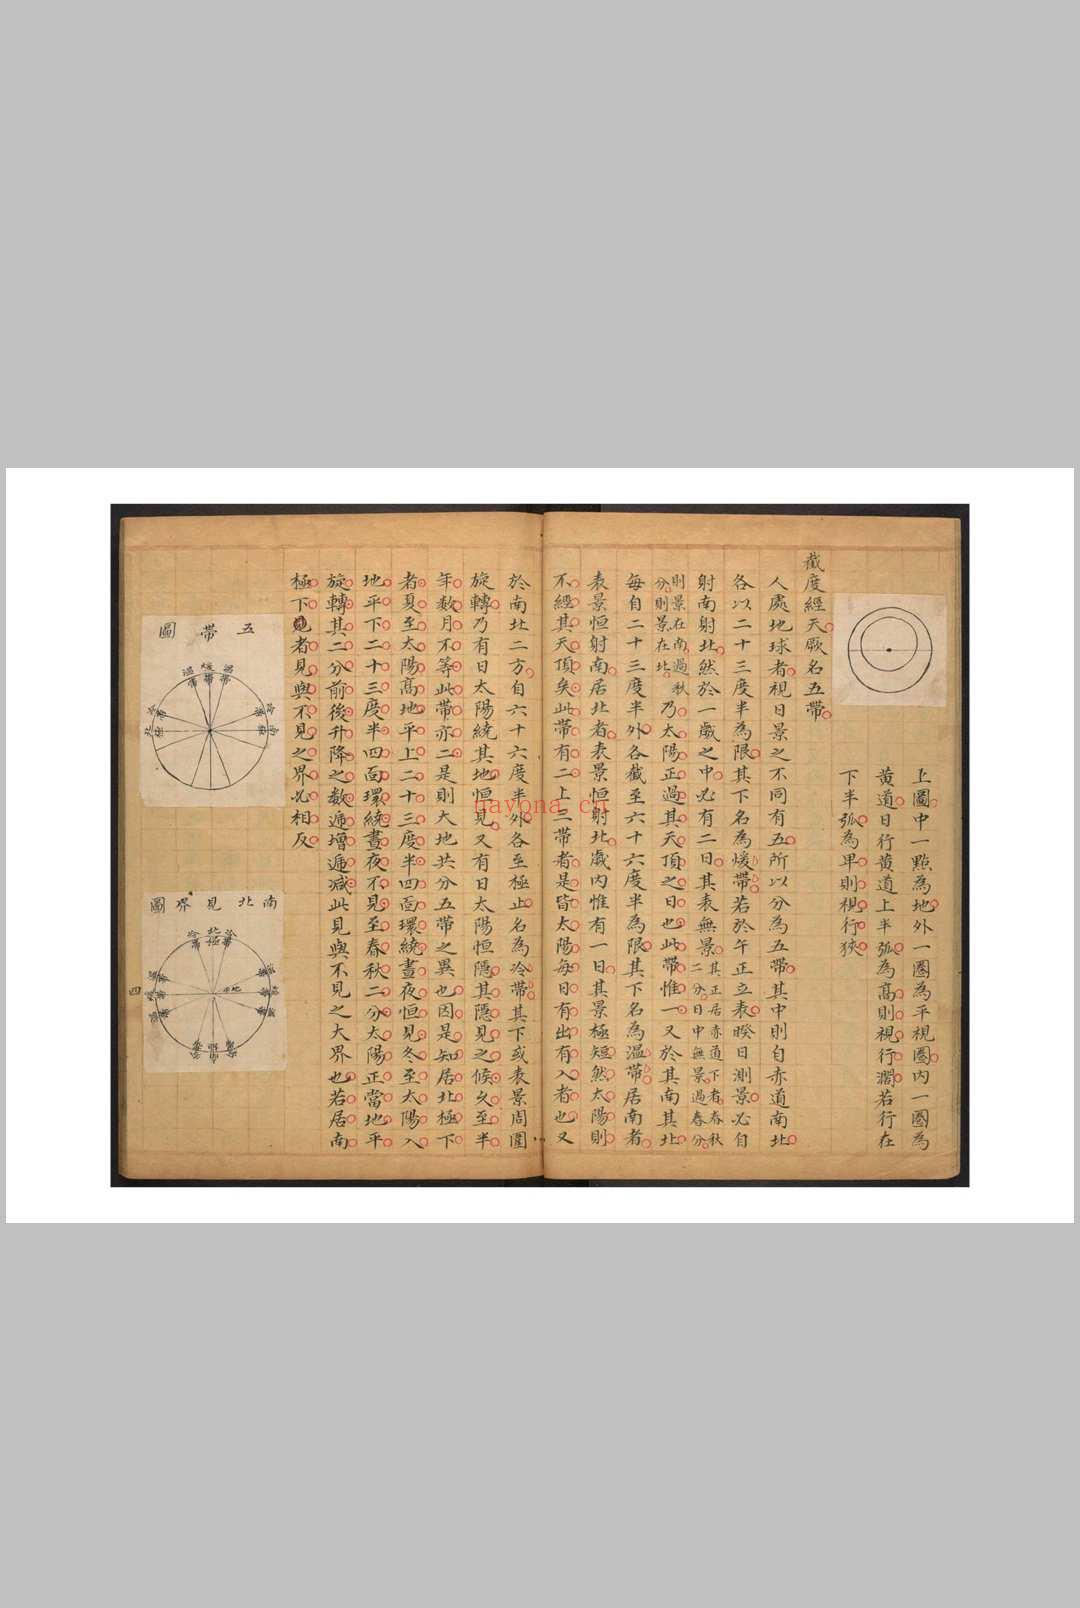 上圖中一點為地外一圈為平視圈內一圈為
黃道日行黃道上半弧為高則視行濶若行在
下半弧為卑則視行狹
截度經天厥名五帶
人處地球者視日景之不同有五所以分為五帶其中則自赤道南北
各以二十三度半為限其下名為煖帶若於午正立表暌日測景必自
射南射北然於一歲之中必有二日其表無景其正居赤道下者春秋
二分日中無景過春分
則景在南過秋
分則景在北乃太陽正過其天頂之日也此帶惟一又於其南其北
每自二十三度半外各截至六十六度半為限其下名為溫帶居南者
表景恒射南居北者表景恒射北歲內惟有一日其景極短然太陽則
不經其天頂矣此帶有二上三帶者是皆太陽每日有出有入者也又
於南北二方自六十六度半外各至極止名為冷帶其下或表景周圍
旋轉乃有日太陽繞其地恒見又有日太陽恒隱其隱見之候久至半
年數月不等此帶亦二是則大地共分五帶之異也因是知居北極下
者夏至太陽高地平上二十三度半四面環繞晝夜恒見冬至太陽入
地平下二十三度半四面環繞晝夜不見至春秋二分太陽正當地平
旋轉其二分前後升降之數遞增遞減此見與不見之大界也若居南
極下見者見與不見之界必相反
五帶圖
溫帶
煖帶
溫帶
冷帶
冷帶
北極
南極
南北見界圖
北極
冷帶
冷帶
溫帶
煖帶
溫帶
地中
溫帶
煖帶
溫帶
冷帶
南極
冷帶
四
nayona.cn